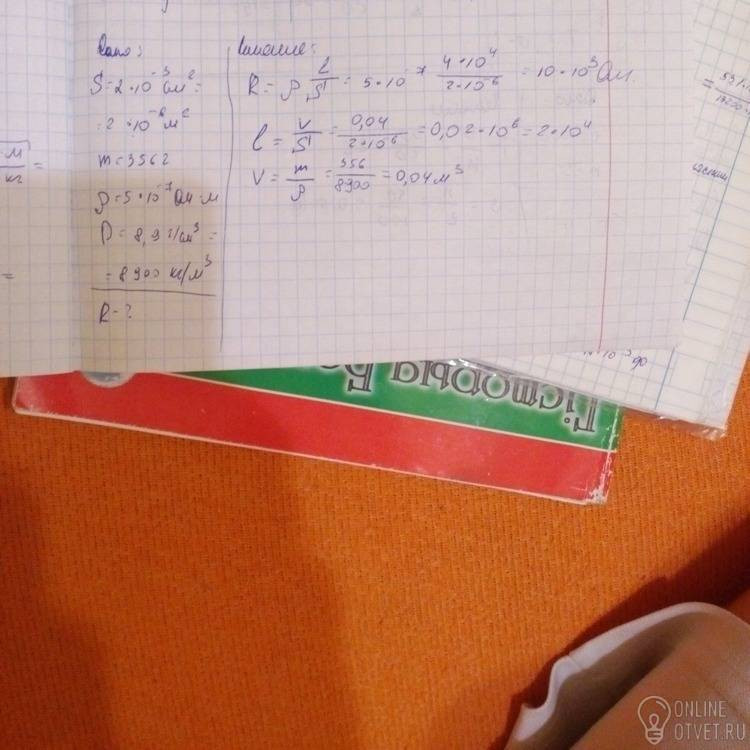 Дано:
S = 2·10⁻³ см² =
= 2·10⁻⁶ м²
m = 356 г
ρ = 5·10⁻⁷ Ом·м
D = 8,9 г/см³ =
= 8900 кг/м³
R - ?
Решение:
R = ρ l/S = 5·10⁻⁷ 4·10⁴/2·10⁻⁶ = 10·10³ Ом.
l = V/S = 0,04/2·10⁻⁶ = 0,02·10⁶ = 2·10⁴
V = m/ρ = 356/8900 = 0,04 м³
·м/кг =
=
Гісторыя Бе
ONLINE
OTVET.RU